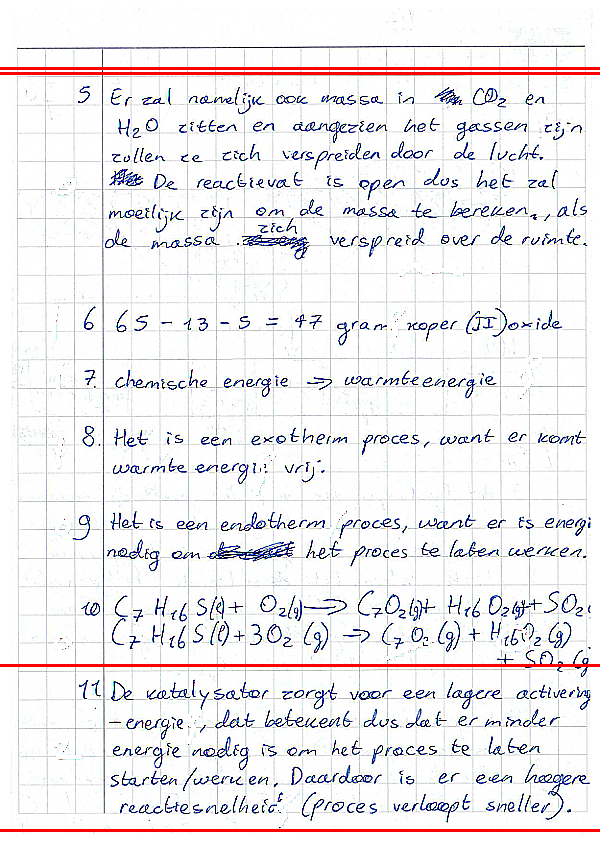 5 Er zal namelijk ook massa in CO2 en
H2O zitten en aangezien het gassen zijn
zullen ze zich verspreiden door de lucht.
De reactievat is open dus het zal
moeilijk zijn om de massa te bereken, als
de massa zich verspreid over de ruimte.
6 65 - 13 - 5 = 47 gram koper (II)oxide
7. chemische energie => warmteenergie
8. Het is een exotherm proces, want er komt
warmte energie vrij.
9 Het is een endotherm proces, want er is energi
nodig om het proces te laten werken.
10 C7 H16 S(l) + O2(g) → C7O2(g) + H16 O2(g) + SO2(
C7 H16 S(l) + 3O2 (g) → C7 O2 (g) + H16O2 (g)
+ SO2 (g
11 De katalysator zorgt voor een lagere activering
-energie, dat betekent dus dat er minder
energie nodig is om het proces te laten
starten/werken. Daardoor is er een hoogere
reactiesnelheid (proces verloopt sneller).